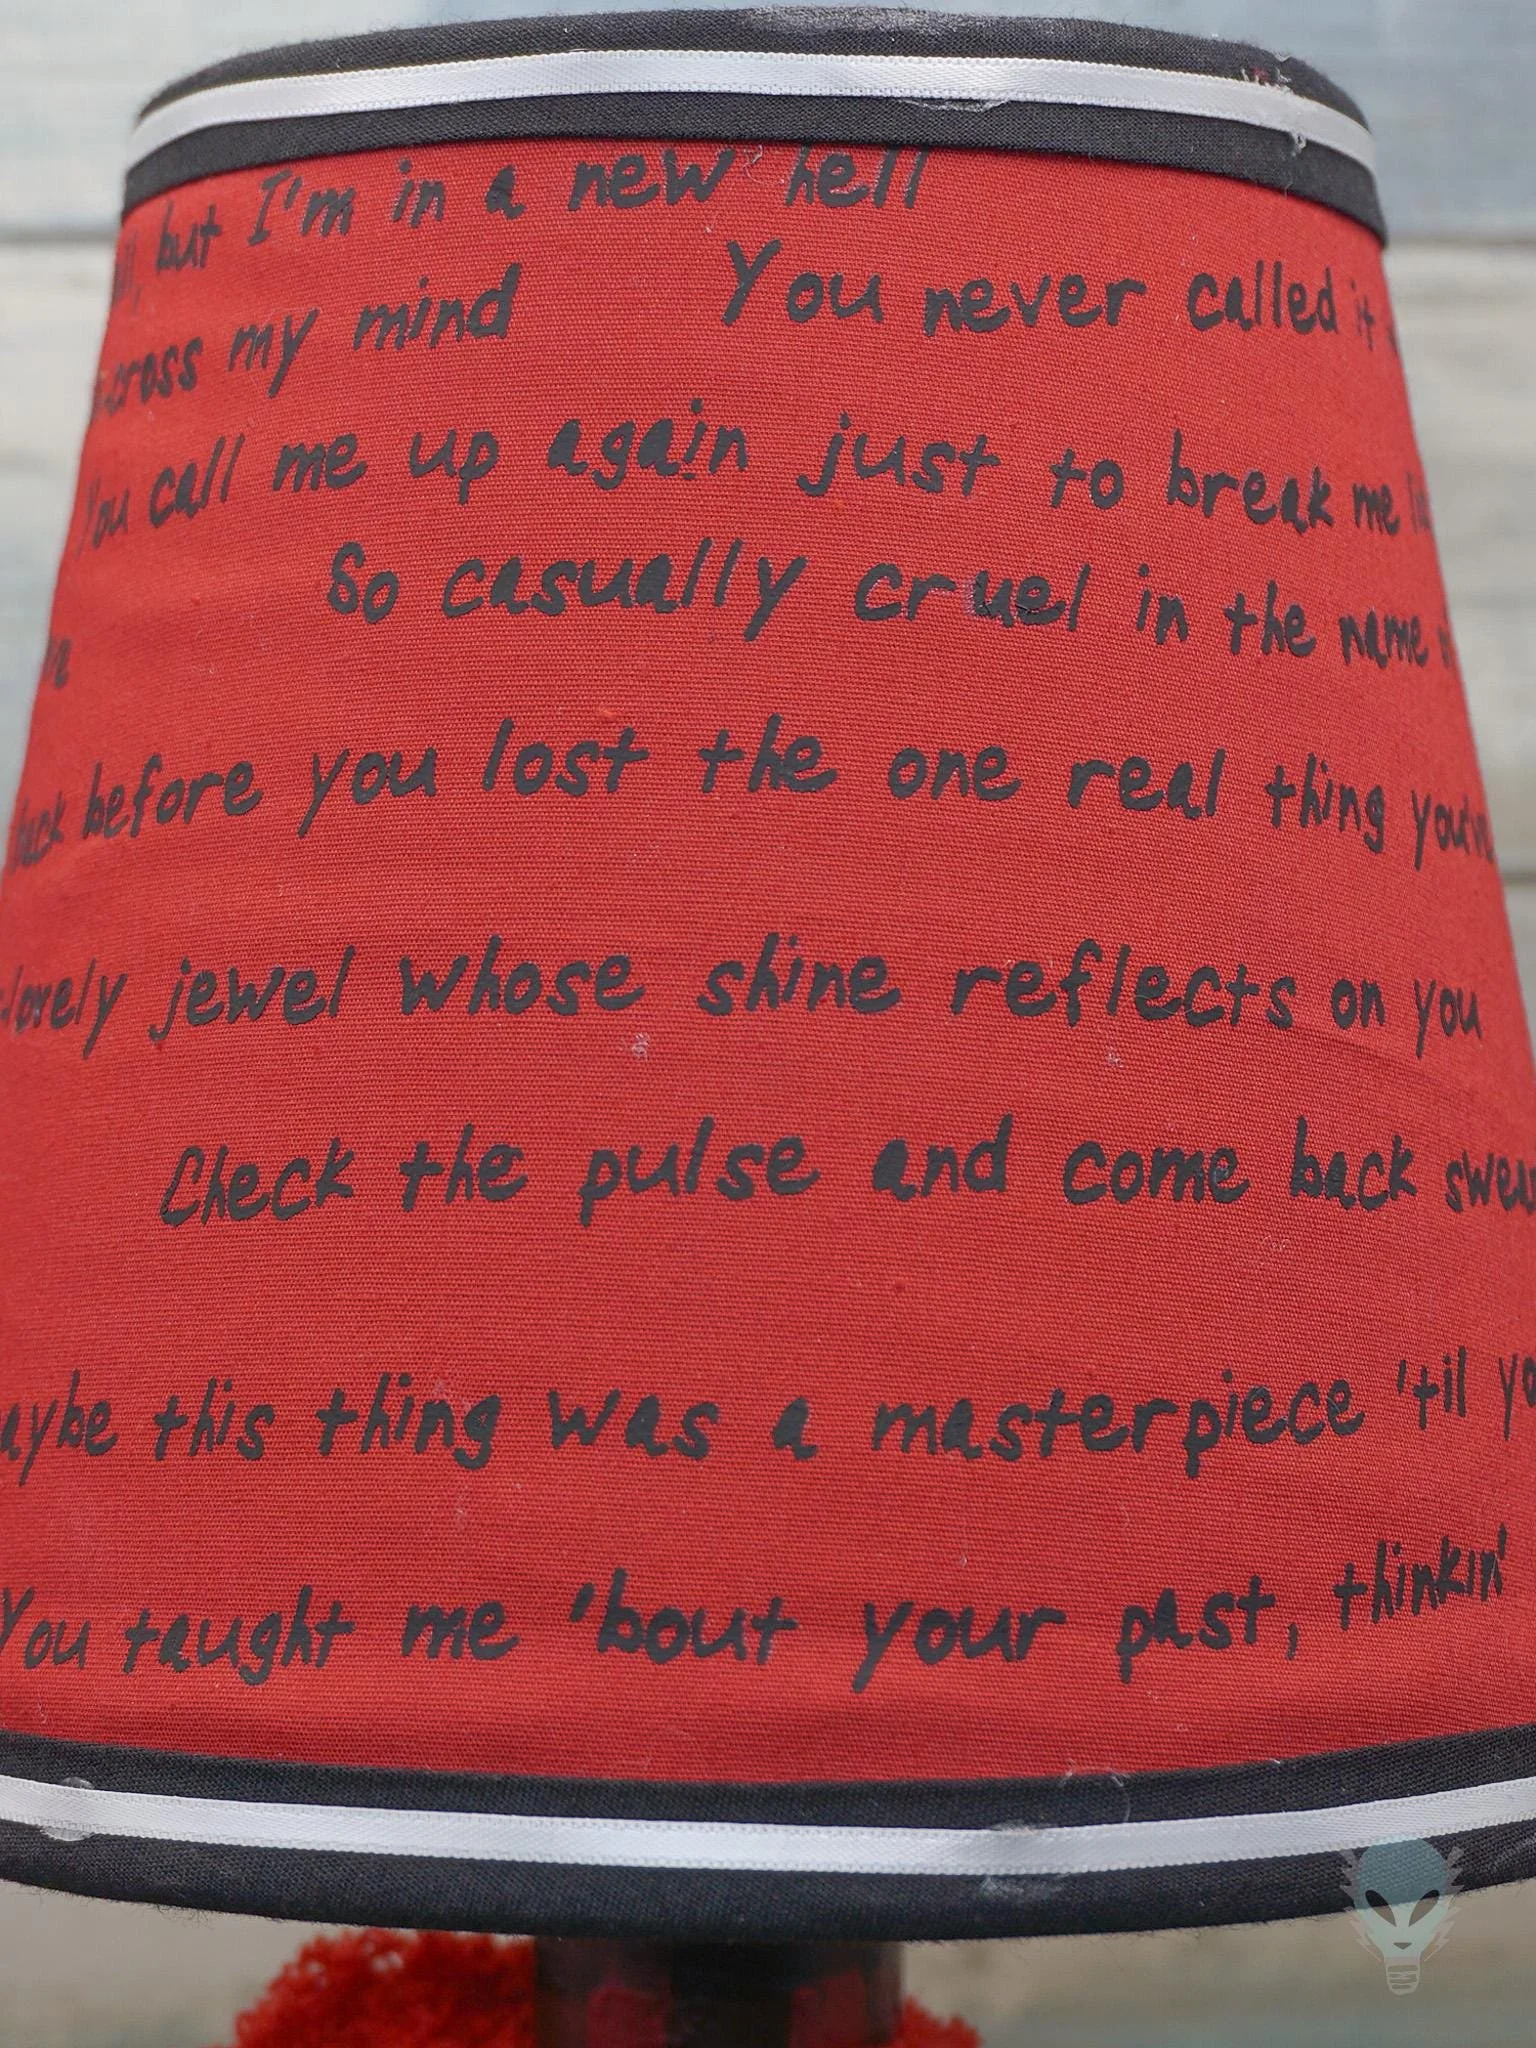 but I'm in a new hell
across my mind
You never called it
You call me up again just to break me
So casually cruel in the name
back before you lost the one real thing you've
lovely jewel whose shine reflects on you
Check the pulse and come back
maybe this thing was a masterpiece 'til
You taught me 'bout your past, thinkin'